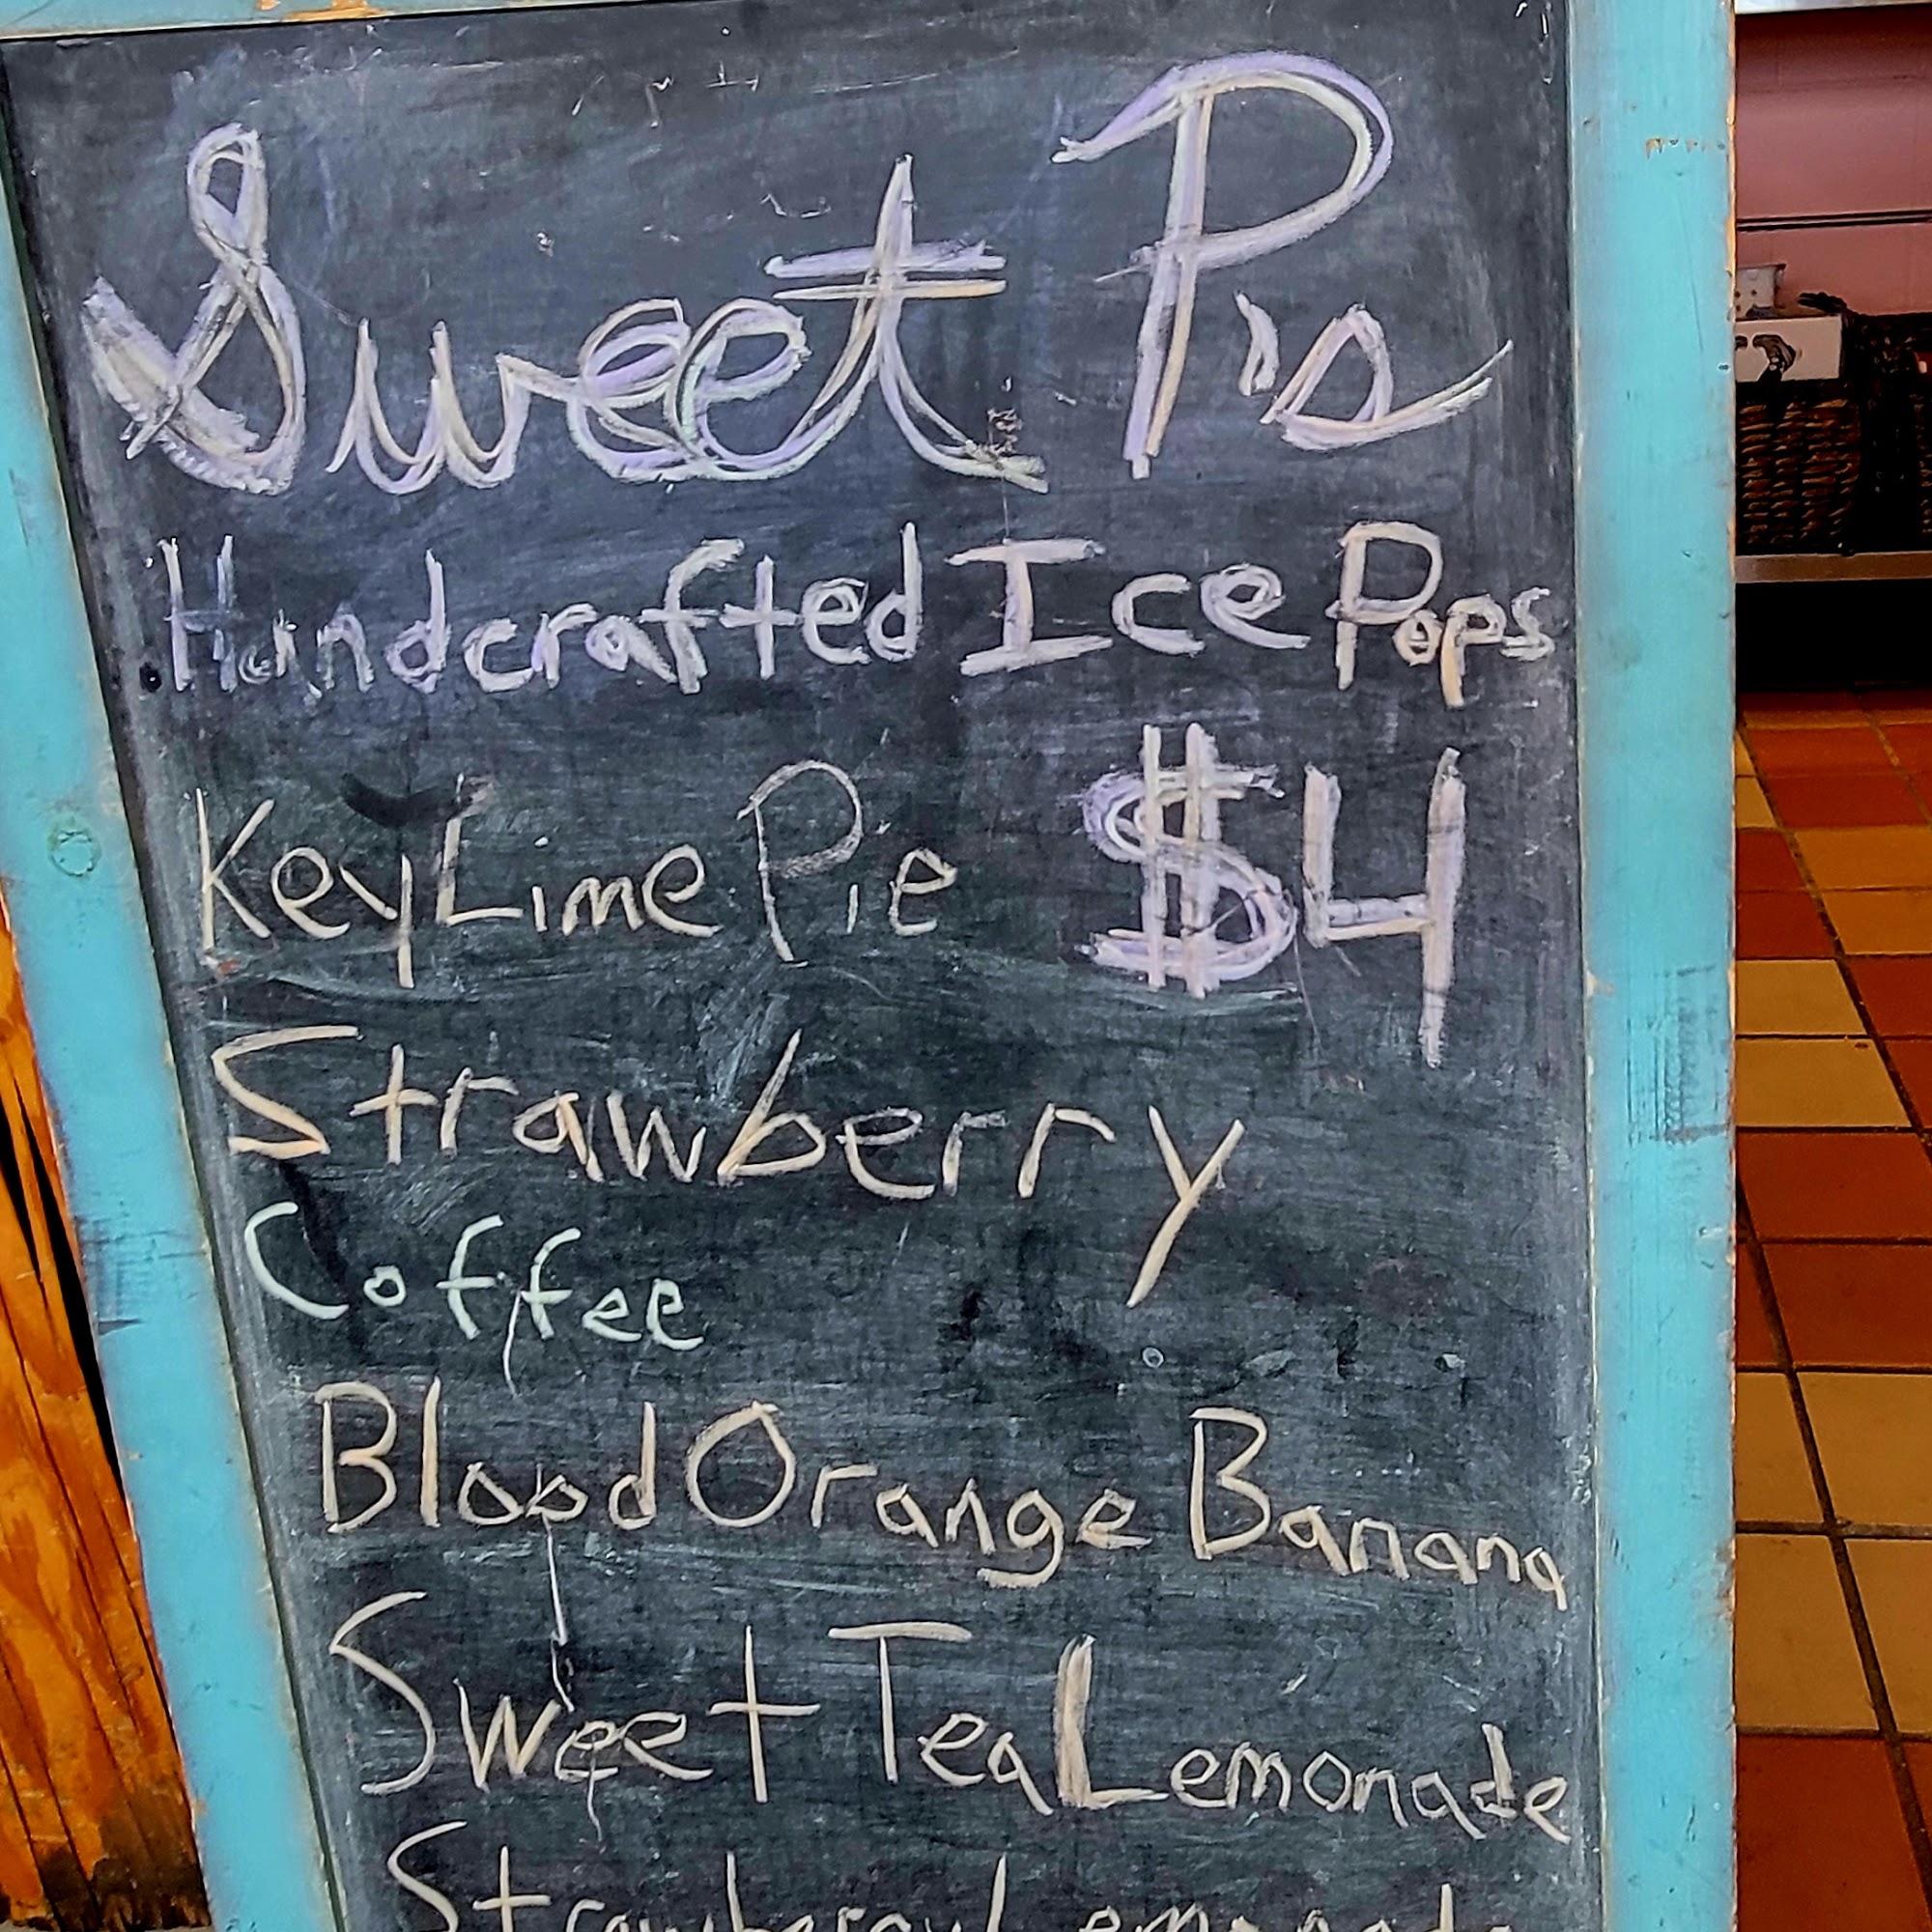 Sweet P's
Handcrafted Ice Pops
Key Lime Pie $4
Strawberry
Coffee
Blood Orange Banana
Sweet Tea Lemonade
Strawberry Lemonade